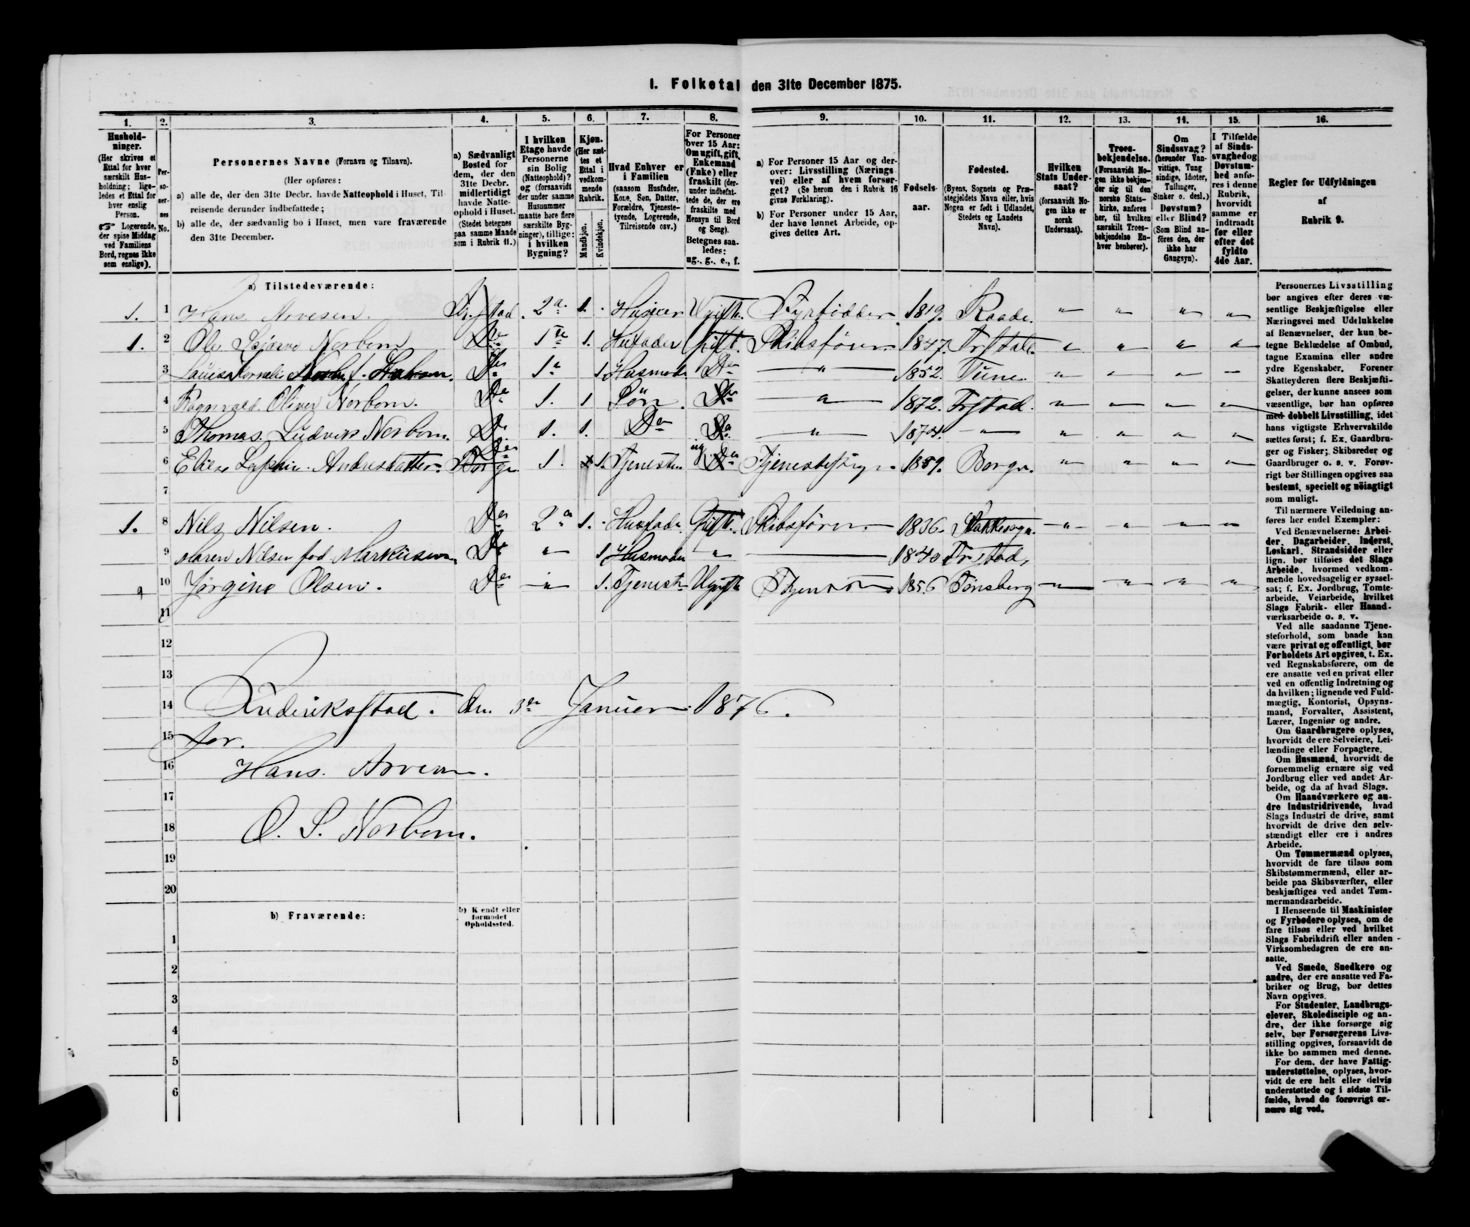 1. Folketal den 31te December 1875.
1. 2. 3. 4. 5. 6. 7. 8. 9. 10. 11. 12. 13. 14. 15. 16.
Hushold-
ninger.
(Her skrives et
Ettal for hver
særskilt Hus-
holdning; lige-
ledes et Ettal for
hver enslig
Person.
Logerende,
der spise Middag
ved Familiens
Bord, regnes ikke
som enslige).
Per-
so-
ner-
nes
No.
Personernes Navne (Fornavn og Tilnavn).
(Her opføres:
a) alle de, der den 31te Decbr. havde Natteophold i Huset, Til-
reisende derunder indbefattede;
b) alle de, der sædvanlig bo i Huset, men vare fraværende
den 31te December.
a) Sædvanligt
Bosted for
dem, der den
31te Decbr.
midlertidigt
havde Natte-
ophold i Huset.
(Stedet betegnes
paa samme Maade
som i Rubrik 11.)
I hvilken
Etage havde
Personerne
sin Bolig
(Natteophold)?
og (forsaavidt
der under samme
Husnummer
maatte høre flere
særskilte Byg-
ninger), tillige:
i hvilken
Bygning?
Kjøn.
(Her sæt-
tes et
Ettal i
vedkom-
mende
Rubrik.
Mandkjøn.
Kvindekjøn.
Hvad Enhver er
i Familien
(saasom Husfader,
Kone, Søn, Datter,
Forældre, Tjeneste-
tyende, Logerende,
Tilreisende osv.)
For Personer
over 15 Aar:
Om ugift, gift,
Enkemand
(Enke) eller
fraskilt (der-
under indbefat-
tede de, der ere
fraskilte med
Hensyn til Bord
og Seng).
Betegnes saa-
ledes:
ug., g., e., f.
a) For Personer 15 Aar og der-
over: Livsstilling (Nærings
vei) eller af hvem forsør-
get? (Se herom den i Rubrik 16
givne Forklaring).
b) For Personer under 15 Aar,
der have lønnet Arbeide, op-
gives dettes Art.
Fødsels-
aar.
Fødested.
(Byens, Sognets og Præ-
stegjeldets Navn eller, hvis
Nogen er født i Udlandet,
Stedets og Landets
Navn).
Hvilken
Stats Under-
saat?
(forsaavidt No-
gen ikke er
norsk
Undersaat).
Troes-
bekjendelse.
(Forsaavidt No-
gen ikke bekjen-
der sig til den
norske Stats-
kirke, anføres
her, til hvilken
særskilt Troes-
bekjendelse En-
hver henhører).
Om
Sindssvag?
(herunder Van-
vittige, Tung
sindige, Idioter,
Tullinger,
Sinker o. desl.)
Døvstum?
eller Blind?
(Som Blind an-
føres den, der
ikke har
Gangsyn).
I Tilfælde
af Sinds-
svaghed og
Døvstum-
hed anfø-
res i denne
Rubrik,
hvorvidt
samme er
indtraadt
før eller
efter det
fyldte
4de Aar.
Regler for Udfyldningen
af
Rubrik 9.
a) Tilstedeværende:
1. 1 Hans Arvesen. 2a 1. Ugift. 1819. Raade. " " " "
1. 2 Norbom 1te 1. Husfader Gift. Skibsfører 1847. Frstad. " " " "
3 Do 1a 1 Husmoder Do " 1852. Tune. " " " "
4 Ragnvald Oliver Norbom. Do 1. 1 Søn. Do " 1872. Frstad. " " " "
5 Thomas Ludvik Norbom. Do 1. 1. Do Do " 1874. " " " " "
6 Elise Sophie Andersdatter Borge 1. 1. ug Borge. " " " "
7
1. 8 Nils Nilsen. Do 2a 1. Husfader Gift. Skibsfører 1836. " " " "
9 Maren Nilsen fød Markussen Do " 1. Husmoder " 1840 Frstad,
10 Jørgine Olsen. Do " 1. Tjenest. Ugift 1856 Tønsberg " " " "
11
12
13
14 Frederikstad. den 3die Januar 1876.
15 for.
16 Hans. Arvesen.
17
18 O. S. Norbom.
19
20
b) Fraværende:
b) Kjendt eller
formodet
Opholdssted.
1
2
3
4
5
6
Personernes Livsstilling
bør angives efter deres væ-
sentlige Beskjæftigelse eller
Næringsvei med Udelukkelse
af Benævnelser, der kun be-
tegne Bekledelse af Ombud,
tagne Examina eller andre
ydre Egenskaber. Forener
Skatteyderen flere Beskjæfti-
gelser, der kunne ansees som
væsentlige, bør han opføres
med dobbelt Livsstilling, idet
hans vigtigste Erhvervskilde
sættes først; f. Ex. Gaardbru-
ger og Fisker; Skibsreder og
Gaardbruger o. s. v. Forøv-
rigt bør Stillingen opgives saa
bestemt, specielt og nøiagtigt
som muligt.
Til nærmere Veiledning an-
føres her endel Exempler:
Ved Benævnelserne: Arbei-
der, Dagarbeider, Inderst,
Løskarl, Strandsidder eller
lign. bør tilføies det Slags
Arbeide, hvormed vedkom-
mende hovedsagelig er syssel-
sat; f. Ex. Jordbrug, Tomte-
arbeide, Veiarbeide, hvilket
Slags Fabrik- eller Haand-
værksarbeide o. s. v.
Ved alle saadanne Tjene-
steforhold, som baade kan
være privat og offentligt, bør
Forholdets Art opgives, f. Ex.
ved Regnskabsførere, om de
ere ansatte ved en privat eller
ved en offentlig Indretning og
da hvilken; lignende ved Fuld-
mægtig, Kontorist, Opsyns-
mand, Forvalter, Assistent,
Lærer, Ingeniør og andre.
Om Gaardbrugere oplyses,
hvorvidt de ere Selveiere, Lei-
lændinge eller Forpagtere.
Om Husmænd, hvorvidt de
fornemmelig ernære sig ved
Jordbrug eller ved andet Ar-
beide, og da af hvad Slags.
Om Haandværkere og an-
dre Industridrivende, hvad
Slags Industri de drive, samt
hvorvidt de drive den selv-
stændigt eller ere i andres
Arbeide.
Om Tømmermænd oplyses,
hvorvidt de fare tilsøs som
Skibstømmermænd, eller ar-
beide paa Skibsværfter, eller
beskjæftiges ved andet Tøm-
mermandsarbeide.
I Henseende til Maskinister
og Fyrbødere oplyses, om de
fare tilsøs eller ved hvilket
Slags Fabrikdrift eller anden
Virksomhedsgren de ere an-
satte.
Ved Smede, Snedkere og
andre, der ere ansatte ved Fa-
briker og Brug, bør dettes
Navn opgives.
For Studenter, Landbrugs-
elever, Skoledisciple og an-
dre, der ikke forsørge sig
selv, bør Forsørgerens Livs-
stilling opgives, forsaavidt de
ikke bo sammen med denne.
For dem, der have Fattig-
understøttelse, oplyses, hvor-
vidt de ere helt eller delvis
understøttede og i sidste Til-
fælde, hvad de forøvrigt er-
nære sig ved.